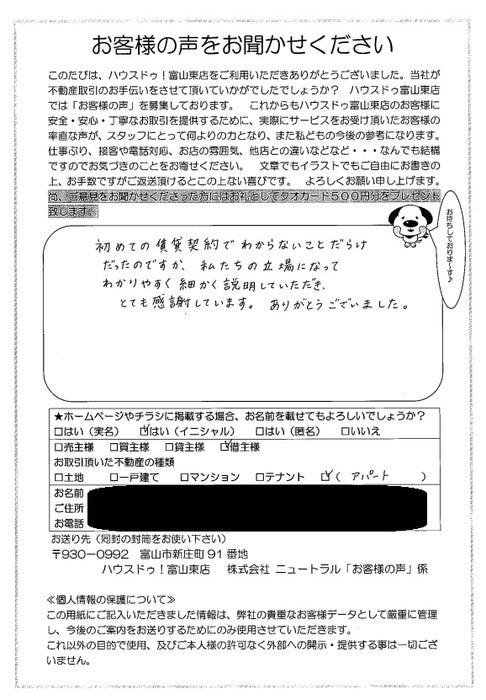 お客様の声をお聞かせください
このたびは、ハウスドゥ！富山東店をご利用いただきありがとうございました。当社が
不動産取引のお手伝いをさせて頂いていかがでしたでしょうか？　ハウスドゥ富山東店
では「お客様の声」を募集しております。　これからもハウスドゥ富山東店のお客様に
安全・安心・丁寧なお取引を提供するために、実際にサービスをお受け頂いたお客様の
率直な声が、スタッフにとって何よりの力となり、また私どもの今後の参考になります。
仕事ぶり、接客や電話対応、お店の雰囲気、他店との違いなどなど・・・なんでも結構
ですのでお気づきのことをお寄せください。　文章でもイラストでもご自由にお書きの
上、お手数ですがご返送頂けるとこの上ない喜びです。　よろしくお願い申し上げます。
尚、ご意見をお聞かせくださった方にはお礼としてクオカード５００円分をプレゼント
致します。
お待ちしておりま～す♪
初めての賃貸契約でわからないことだらけ
だったのですが、私たちの立場になって
わかりやすく細かく説明していただき、
とても感謝しています。ありがとうございました。
★ホームページやチラシに掲載する場合、お名前を載せてもよろしいでしょうか？
□はい（実名）　☑はい（イニシャル）　□はい（匿名）　□いいえ
□売主様　□買主様　□貸主様　☑借主様
お取引頂いた不動産の種類
□土地　□一戸建て　□マンション　□テナント　☑（　アパート　）
お名前
ご住所
お電話
お送り先（同封の封筒をお使い下さい）
〒930-0992　富山市新庄町91番地
ハウスドゥ！富山東店　株式会社 ニュートラル「お客様の声」係
≪個人情報の保護について≫
この用紙にご記入いただきました情報は、弊社の貴重なお客様データとして厳重に管理
し、今後のご案内をお送りするためにのみ使用させていただきます。
これ以外の目的で使用、及びご本人様の許可なく外部への開示・提供する事は一切ござ
いません。